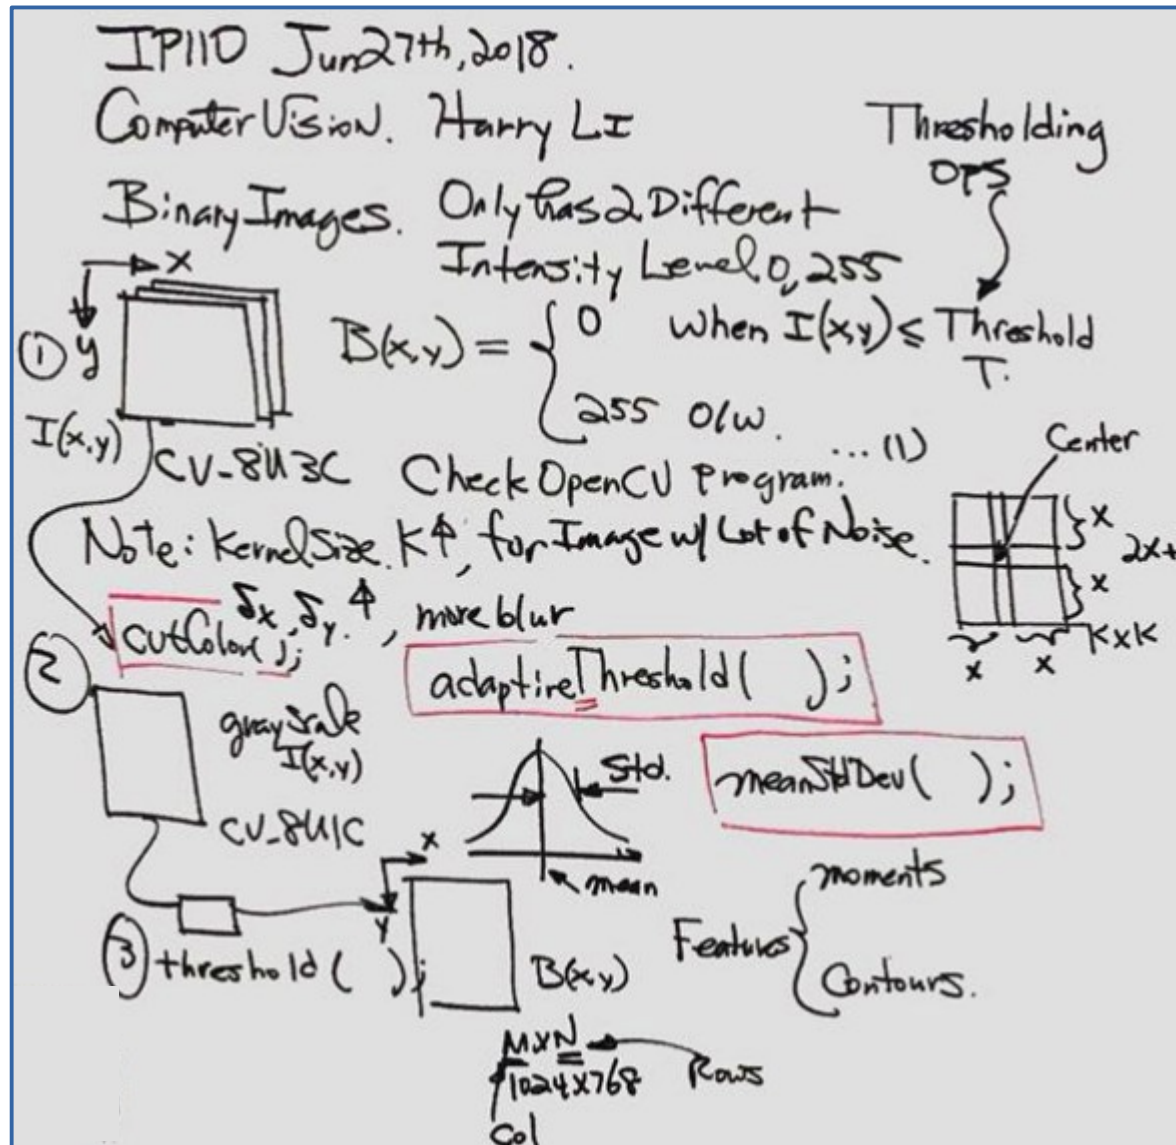 IP110 Jun27th, 2018.
Computer Vision. Harry LI
Thresholding
OPS
Binary Images. Only has 2 Different
Intensity Level 0, 255
x
y
①
I(x,y)
B(x,y) = { 0 when I(x,y) ≤ Threshold
T.
255 O/W.
... (1)
CV-8U3C Check OpenCV Program.
Center
x
2x+
x
KxK
x x
Note: Kernel Size. K↑, for Image w/ Lot of Noise.
δx, δy. ↑, more blur
cvtColor( );
②
adaptiveThreshold( );
gray scale
I(x,y)
CV-8U1C
Std.
mean
meanStdDev( );
x
y
③ threshold( );
B(x,y)
Features { moments
Contours.
MxN
1024x768
Rows
Col